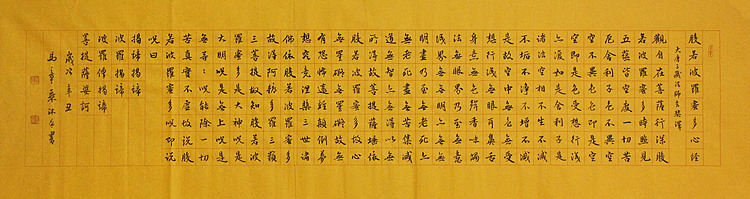 般若波羅蜜多心經
大唐三藏法師玄奘譯
觀自在菩薩行深般
若波羅蜜多時照見
五蘊皆空度一切苦
厄舍利子色不異空
空不異色色即是空
空即是色受想行識
亦復如是舍利子是
諸法空相不生不滅
不垢不淨不增不減
是故空中無色無受
想行識無眼耳鼻舌
身意無色聲香味觸
法無眼界乃至無意
識界無無明亦無無
明盡乃至無老死亦
無老死盡無苦集滅
道無智亦無得以無
所得故菩提薩埵依
般若波羅蜜多故心
無罣礙無罣礙故無
有恐怖遠離顛倒夢
想究竟涅槃三世諸
佛依般若波羅蜜多
故得阿耨多羅三藐
三菩提故知般若波
羅蜜多是大神咒是
大明咒是無上咒是
無等〻咒能除一切
苦真實不虛故說般
若波羅蜜多咒即說
咒曰
揭諦揭諦
波羅揭諦
波羅僧揭諦
菩提薩婆訶
歲次辛丑
馬章沐手書